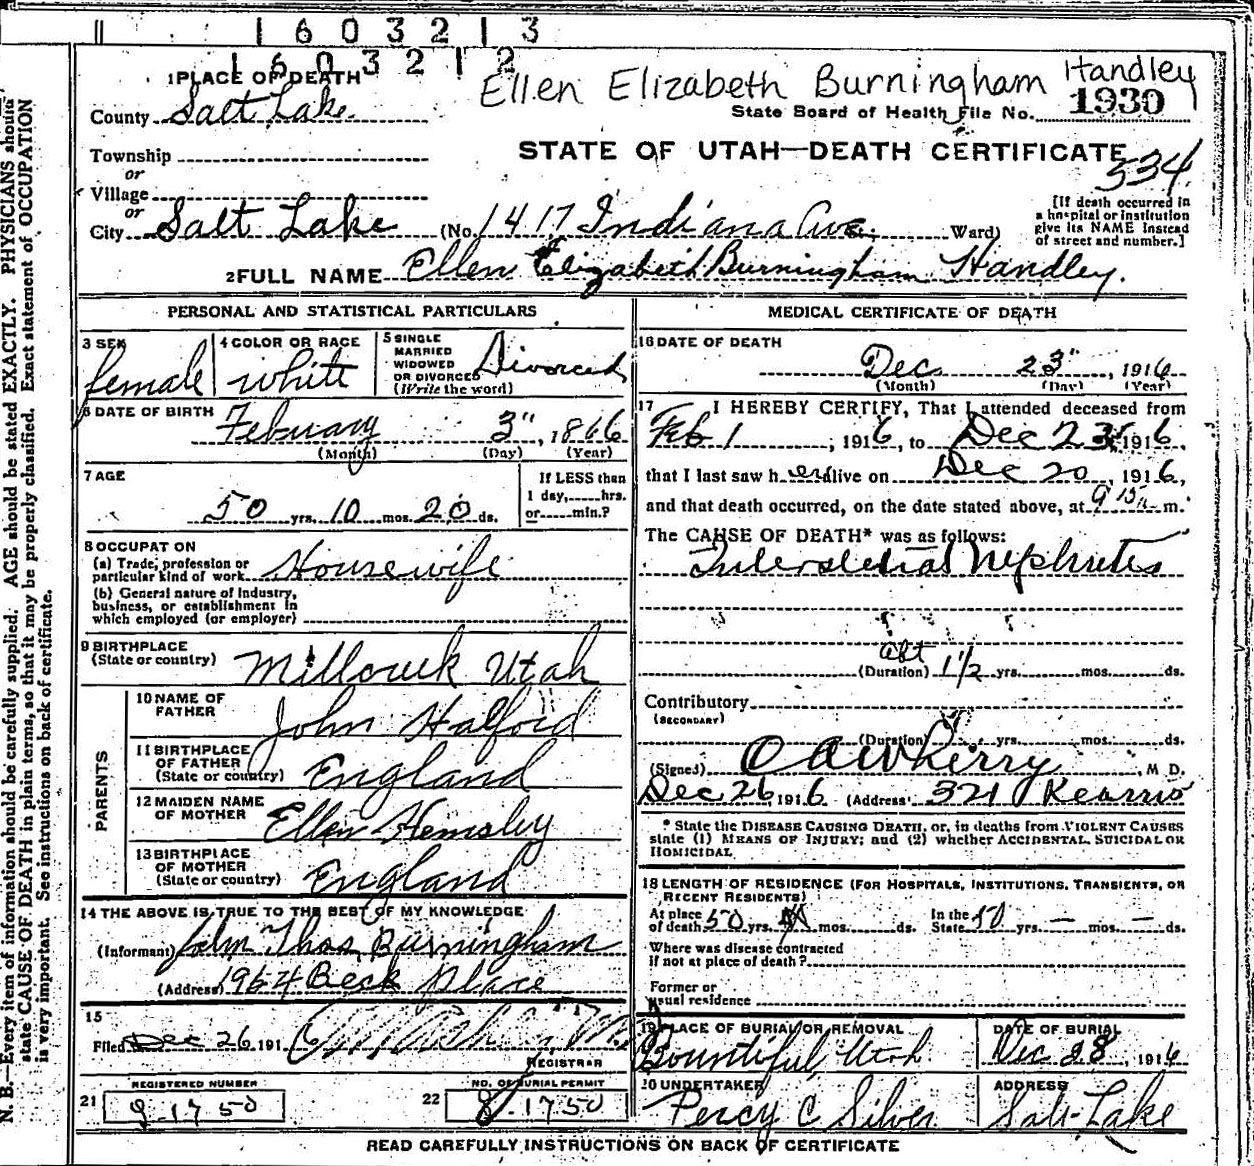 1603213
1603212
Ellen Elizabeth Burningham Handley
1 PLACE OF DEATH
County Salt Lake
State Board of Health File No. 1930
Township
STATE OF UTAH—DEATH CERTIFICATE
534
or
Village
or
City Salt Lake (No. 1417 Indiana Ave. Ward)
[If death occurred in
a hospital or institution
give its NAME instead
of street and number.]
2 FULL NAME Ellen Elizabeth Burningham Handley.
PERSONAL AND STATISTICAL PARTICULARS
3 SEX female
4 COLOR OR RACE white
5 SINGLE
MARRIED
WIDOWED
OR DIVORCED Divorced
(Write the word)
6 DATE OF BIRTH
February 3", 1866
(Month) (Day) (Year)
7 AGE
50 yrs. 10 mos. 20 ds.
If LESS than
1 day, hrs.
or min.?
8 OCCUPATION
(a) Trade, profession or
particular kind of work Housewife
(b) General nature of industry,
business, or establishment in
which employed (or employer)
9 BIRTHPLACE
(State or country) Millcreek Utah
PARENTS
10 NAME OF
FATHER John Halford
11 BIRTHPLACE
OF FATHER
(State or country) England
12 MAIDEN NAME
OF MOTHER Ellen Hemsley
13 BIRTHPLACE
OF MOTHER
(State or country) England
14 THE ABOVE IS TRUE TO THE BEST OF MY KNOWLEDGE
(Informant) John Thos. Burningham
(Address) 1954 Beck Place
15
Filed Dec 26 191
REGISTRAR
REGISTERED NUMBER
21 9-1750
NO. OF BURIAL PERMIT
22 1750
MEDICAL CERTIFICATE OF DEATH
16 DATE OF DEATH
Dec 23", 1916
(Month) (Day) (Year)
17 I HEREBY CERTIFY, That I attended deceased from
Feb 1, 1916, to Dec 23, 1916,
that I last saw her alive on Dec 20, 1916,
and that death occurred, on the date stated above, at 9 15 a m.
The CAUSE OF DEATH* was as follows:
Interstetial Nephrites
abt
(Duration) 1 1/2 yrs. mos. ds.
Contributory
(SECONDARY)
(Duration) yrs. mos. ds.
(Signed) , M D.
Dec 26 1916 (Address) 321 Kearns
* State the DISEASE CAUSING DEATH, or, in deaths from VIOLENT CAUSES
state (1) MEANS OF INJURY; and (2) whether ACCIDENTAL, SUICIDAL OR
HOMICIDAL.
18 LENGTH OF RESIDENCE (FOR HOSPITALS, INSTITUTIONS, TRANSIENTS, OR
RECENT RESIDENTS)
At place
of death 50 yrs. mos. ds.
In the
State 50 yrs. — mos. — ds.
Where was disease contracted
if not at place of death ?
Former or
usual residence
19 PLACE OF BURIAL OR REMOVAL
Bountiful, Utah
DATE OF BURIAL
Dec 28, 1916
20 UNDERTAKER
Percy C Silver
ADDRESS
Salt Lake
READ CAREFULLY INSTRUCTIONS ON BACK OF CERTIFICATE
N. B.—Every item of information should be carefully supplied. AGE should be stated EXACTLY. PHYSICIANS should
state CAUSE OF DEATH in plain terms, so that it may be properly classified. Exact statement of OCCUPATION
is very important. See instructions on back of certificate.